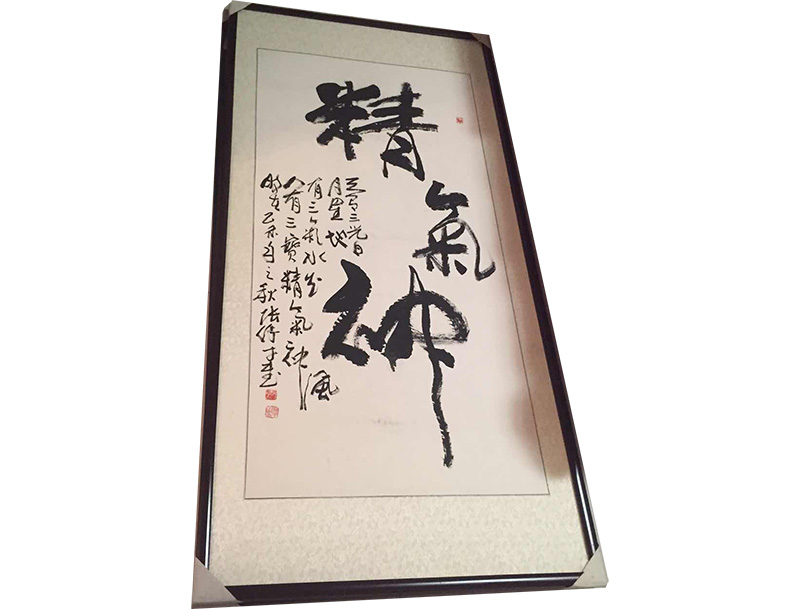 精氣神
天有三光日
月星地
有三氣水火
風
人有三寶精氣神
乙未年之秋張